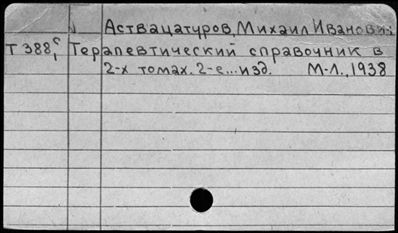 Аствацатуров, Михаил Иванович
Т 388, с Терапевтический справочник в
2-х томах. 2-е... изд. М-Л., 1938